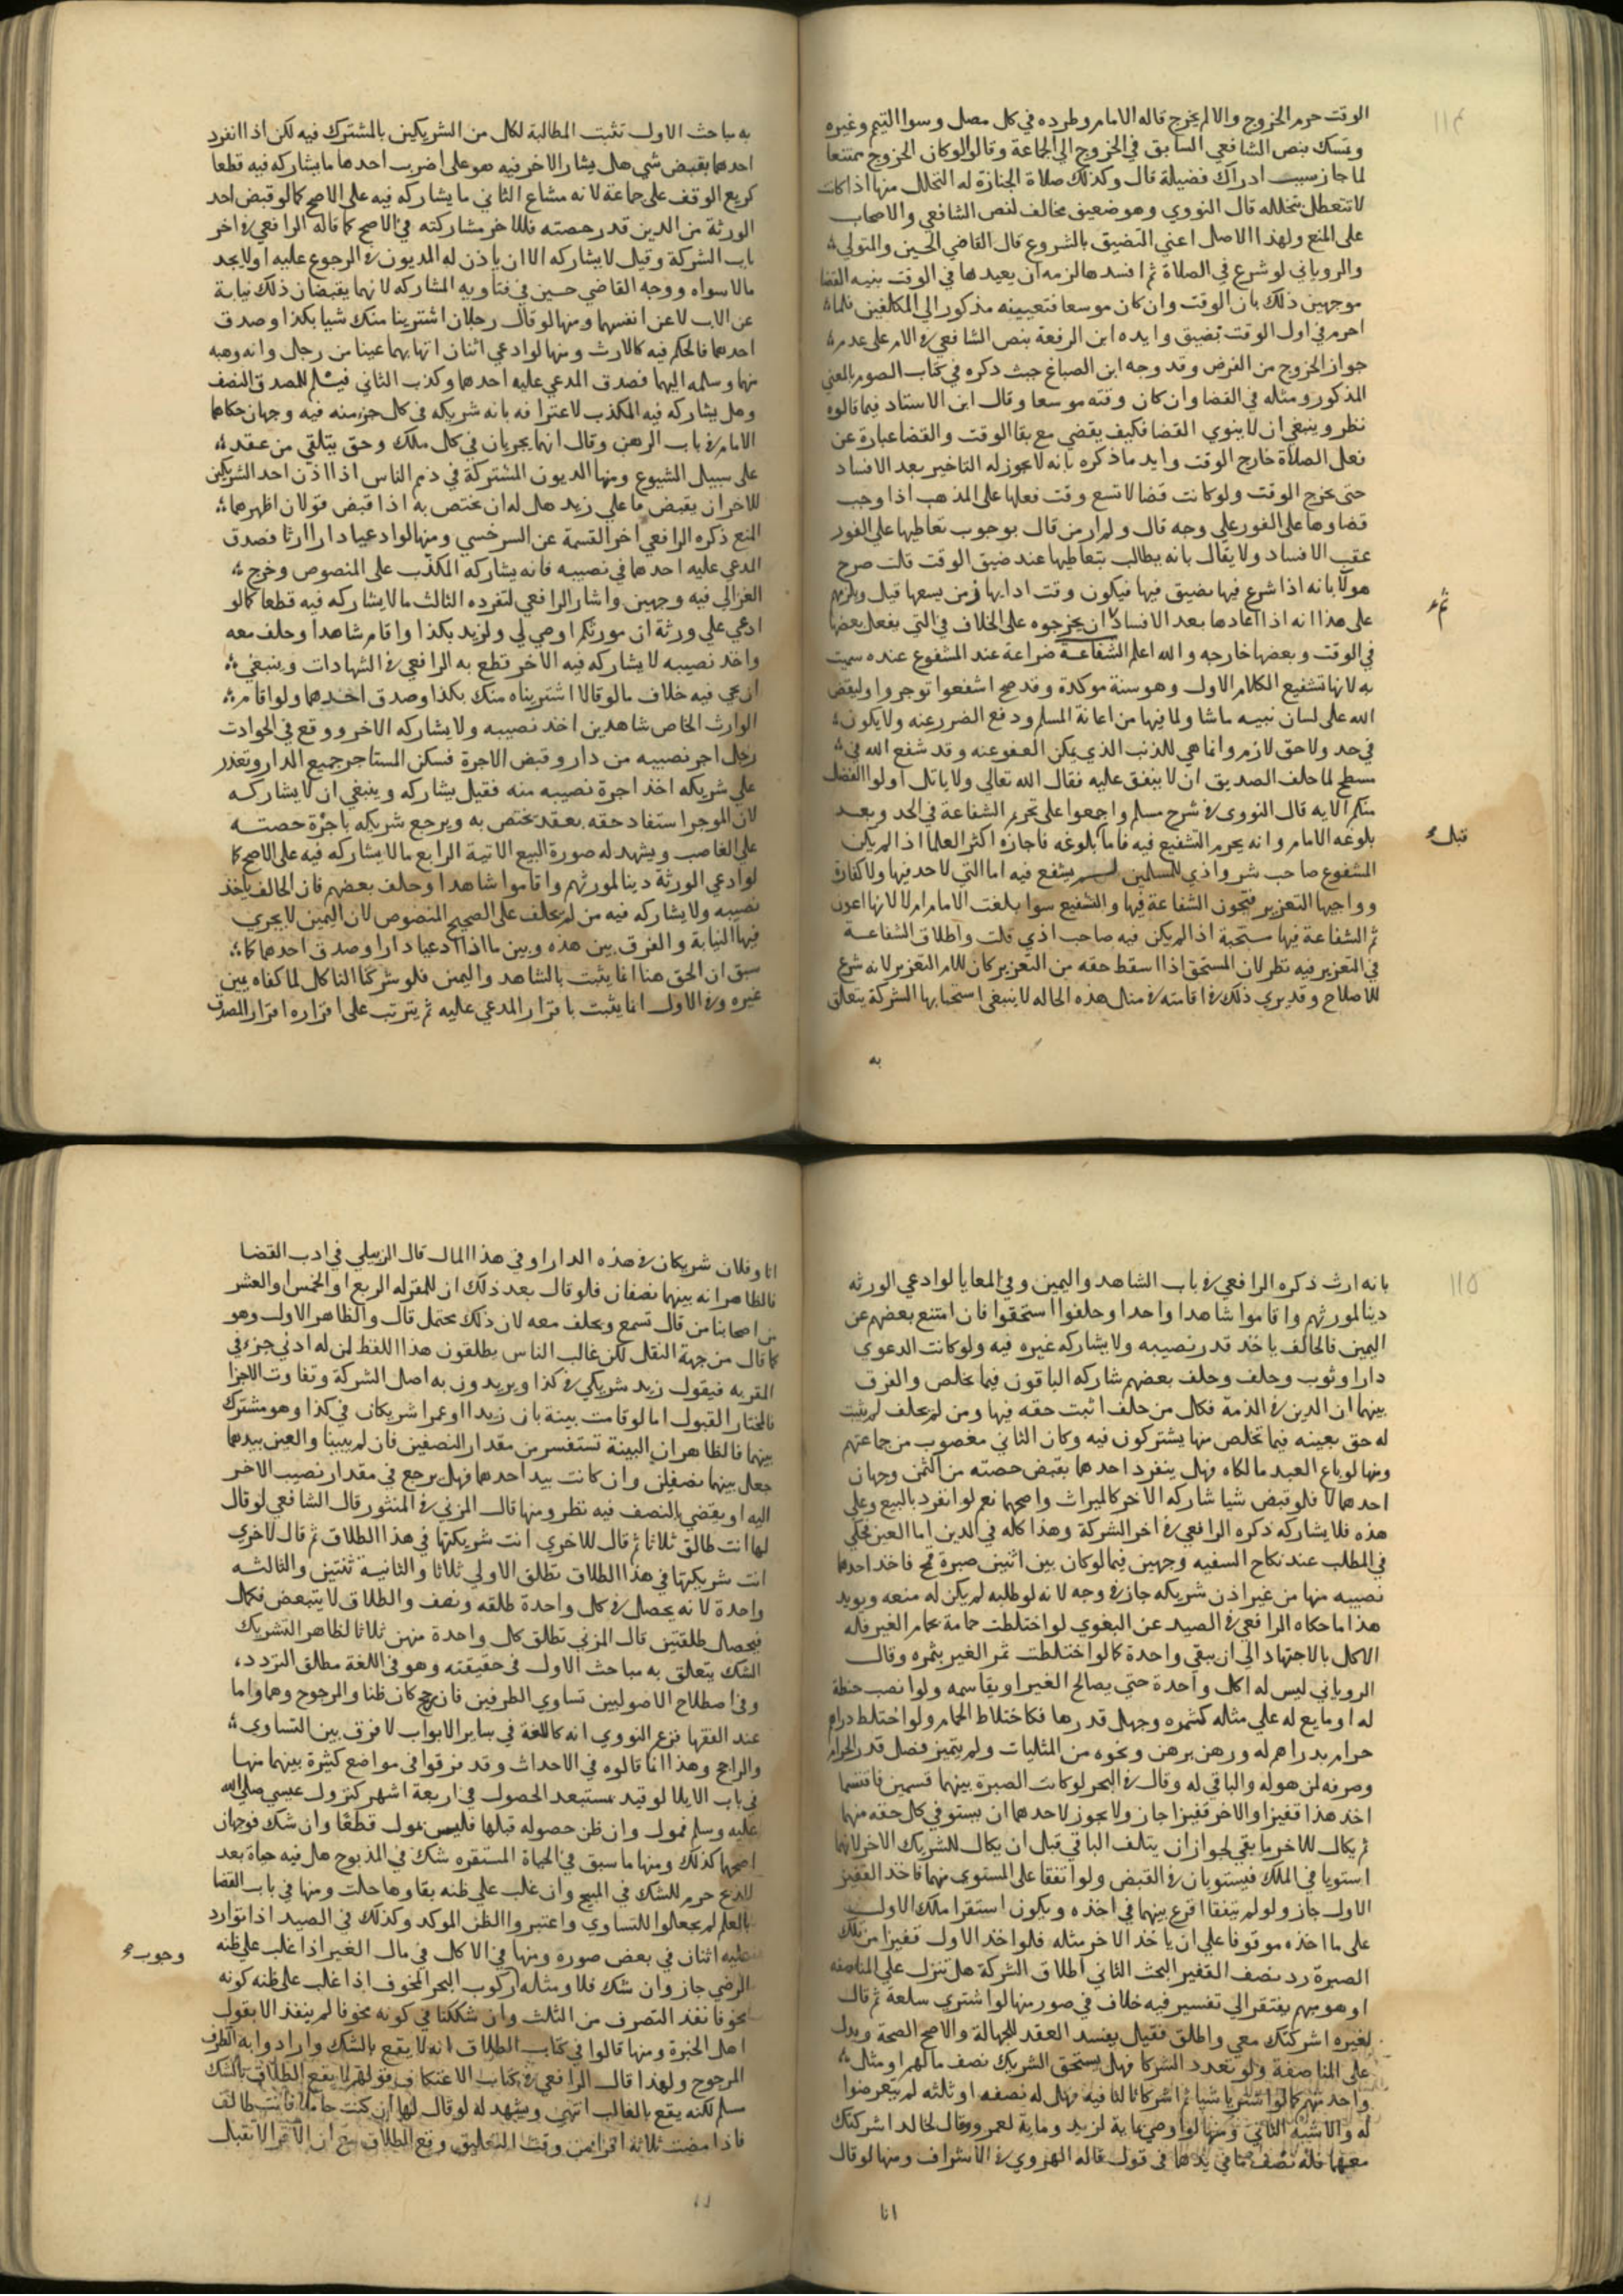 ١١٤
الوقت حرم الخروج والا لم يخرج قاله الامام وطرده في كل مصل وسوا التيم وغيره
وتمسك بنص الشافعي السابق في الخروج الي الجماعة وقالوا لو كان الخروج ممتنعا
لما جاز بسبب ادراك فضيلة قال وكذلك صلاة الجنازة له التحلل منها اذا كانت
لا تتعطل بتحلله قال النووي وهو ضعيف مخالف لنص الشافعي والاصحاب
على المنع ولهذا الاصل اعني التضيق بالشروع قال القاضي الحسين والمتولي
والروياني لو شرع في الصلاة ثم افسدها لزمه ان يعيدها في الوقت بنيه القضا
موجهين ذلك بان الوقت وان كان موسعا فتعيينه مذكور الي المكلفين فلما
احرم في اول الوقت تضيق وايده ابن الرفعة بنص الشافعي في الام على عدم
جواز الخروج من الفرض وقد وجه ابن الصباغ حيث ذكره في كتاب الصوم بالمعني
المذكور ومثله في القضا وان كان وقته موسعا وقال ابن الاستاد فيما قالوه
نظر وينبغي ان لا ينوي القضا فكيف يقضي مع بقا الوقت والقضا عبارة عن
فعل الصلاة خارج الوقت وايد ما ذكره بانه لا يجوز له التاخير بعد الافساد
حتى يخرج الوقت ولو كانت قضا لا تسع وقت فعلها على المذهب اذا وجب
قضاوها على الفور علي وجه قال ولم ار من قال بوجوب تعاطيها علي الفور
عقب الافساد ولا يقال بانه يطالب بتعاطيها عند ضيق الوقت قلت صرح
هولا بانه اذا شرع فيها تضيق فيها فيكون وقت ادايها زمن يسعها قيل ويلزمهم
على هذا انه اذا اعادها بعد الافساد ان يخرجوه على الخلاف في التي يفعل بعضها
في الوقت وبعضها خارجه والله اعلم الشفاعة ضراعة عند المشفوع عنده سميت
به لانها تشفيع الكلام الاول وهو سنة موكدة وقد صح اشفعوا توجروا وليقض
الله على لسان نبيه ما شا ولما فيها من اعانة المسلم ودفع الضرر عنه ولا يكون
في حد ولا حق لازم وانما هي للذنب الذي يمكن العفو عنه وقد شفع الله في
مسطح لما حلف الصديق ان لا ينفق عليه فقال الله تعالي ولا ياتل اولوا الفضل
منكم الايه قال النووي في شرح مسلم واجمعوا على تحريم الشفاعة في الحد وبعد
بلوغه الامام وانه يحرم التشفيع فيه فاما بلوغه فاجازه اكثر العلما اذا لم يكن
المشفوع صاحب شر واذي للمسلمين لم يشفع فيه اما التي لا حد فيها ولا كفارة
وواجبها التعزير فتجون الشفاعة فيها والتشفيع سوا بلغت الامام ام لا لانها اهون
ثم الشفاعة فيها مستحبة اذا لم يكن فيه صاحب اذي قلت واطلاق الشفاعة
في التعزير فيه نظر لان المستحق اذا اسقط حقه من التعزير كان للامام التعزير لانه شرع
للاصلاح وقد يري ذلك في اقامته في مثل هذه الحاله لا ينبغي استحبابها الشركة يتعلق
به
قبل
به مباحث الاول تثبت المطالبة لكل من الشريكين بالمشترك فيه لكن اذا انفرد
احدهما بقبض شي هل يشار الاخر فيه هو على اضرب احدها ما يشاركه فيه قطعا
كريع الوقف على جماعة لانه مشاع الثاني ما يشاركه فيه على الاصح كما لو قبض احد
الورثة من الدين قدر حصته فللاخر مشاركته في الاصح كما قاله الرافعي في اخر
باب الشركة وقيل لا يشاركه الا ان ياذن له المديون في الرجوع عليه او لا يجد
مالا سواه ووجه القاضي حسين في فتاويه المشاركه لانهما يقبضان ذلك نيابة
عن الاب لا عن انفسهما ومنها لو قال رجلان اشترينا منك شيا بكذا وصدق
احدهما فالحكم فيه كالارث ومنها لو ادعي اثنان اتهابهما عينا من رجل وانه وهبه
منهما وسلمه اليهما فصدق المدعي عليه احدهما وكذب الثاني فيسلم للمصدق النصف
وهل يشاركه فيه المكذب لاعترافه بانه شريكه في كل جزء منه فيه وجهان حكاهما
الامام في باب الرهن وقال انهما يجريان في كل ملك وحق يتلقي من عقد
على سبيل الشيوع ومنها الديون المشتركة في ذمم الناس اذا اذن احد الشريكين
للاخر ان يقبض ما علي زيد هل له ان يختص به اذا قبض قولان اظهرهما
المنع ذكره الرافعي اخر القسمة عن السرخسي ومنها لو ادعيا دارا ارثا فصدق
المدعي عليه احدهما في نصيبه فانه يشاركه المكذب على المنصوص وخرج
الغزالي فيه وجهين واشار الرافعي لتفرده الثالث ما لا يشاركه فيه قطعا كما لو
ادعي علي ورثة ان مورثكم اوصي لي ولزيد بكذا واقام شاهدا وحلف معه
واخذ نصيبه لا يشاركه فيه الاخر قطع به الرافعي في الشهادات وينبغي
ان يجي فيه خلاف ما لو قالا اشتريناه منك بكذا وصدق احدهما ولو اقام
الوارث الخاص شاهدين اخذ نصيبه ولا يشاركه الاخر ووقع في الحوادث
رجل اجر نصيبه من دار وقبض الاجرة فسكن المستاجر جميع الدار وتعذر
علي شريكه اخذ اجرة نصيبه منه فقيل يشاركه وينبغي ان لا يشاركه
لان الموجر استفاد حقه بعقد يختص به ويرجع شريكه باجرة حصته
على الغاصب ويشهد له صورة البيع الاتية الرابع ما لا يشاركه فيه على الاصح كما
لو ادعي الورثة دينا لمورثهم واقاموا شاهدا وحلف بعضهم فان الحالف ياخذ
نصيبه ولا يشاركه فيه من لم يحلف على الصحيح المنصوص لان اليمين لا يجري
فيها النيابة والفرق بين هذه وبين ما اذا ادعيا دارا وصدق احدهما كما
سبق ان الحق هنا انما يثبت بالشاهد واليمين فلو شركنا الناكل لملكناه بيمين
غيره وفي الاول انما يثبت باقرار المدعي عليه ثم يترتب على اقراره اقرار المصدق
١١٥
بانه ارث ذكره الرافعي في باب الشاهد واليمين وفي المعايا لو ادعي الورثه
دينا لمورثهم واقاموا شاهدا واحدا وحلفوا استحقوا فان امتنع بعضهم عن
اليمين فالحالف ياخذ قدر نصيبه ولا يشاركه غيره فيه ولو كانت الدعوي
دارا وثوب وحلف وحلف بعضهم شاركه الباقون فيما يخلص والفرق
بينهما ان الدين في الذمة فكل من حلف اثبت حقه فيها ومن لم يحلف لم يثبت
له حق بعينه فيما تخلص منها يشتركون فيه وكان الثاني مغصوب من جماعتهم
ومنها لو باع العبد مالكاه فهل ينفرد احدهما بقبض حصته من الثمن وجهان
احدهما لا فلو قبض شيا شاركه الاخر كالميراث واصحهما نعم لو انفرد بالبيع وعلي
هذه فلا يشاركه ذكره الرافعي في اخر الشركة وهذا كله في الدين اما العين فحكي
في المطلب عند نكاح السفيه وجهين فيما لو كان بين اثنين صبرة قمح فاخذ احدهما
نصيبه منها من غير اذن شريكه جاز في وجه لانه لو طلبه لم يكن له منعه ويويد
هذا ما حكاه الرافعي في الصيد عن البغوي لو اختلطت حمامة بحمام الغير فله
الاكل بالاجتهاد الي ان يبقي واحدة كما لو اختلطت ثمر الغير بثمره وقال
الروياني ليس له اكل واحدة حتي يصالح الغير او يقاسمه ولو انصب حنطة
له او مايع له علي مثله كثمره وجهل قدرها فكاختلاط الحمام ولو اختلط درهم
حرام بدراهم له ورهن برهن ونحوه من المثليات ولم يتميز فصل قدر الحرام
وصرفه لمن هو له والباقي له وقال في البحر لو كانت الصبرة بينهما قسمين فاقتسما
اخذ هذا قفيزا والاخر قفيزا جاز ولا يجوز لاحدهما ان يستوفي كل حقه منهما
ثم يكال للاخر ما بقي لجواز ان يتلف الباقي قبل ان يكال للشريك الاخر لانهما
استويا في الملك فيستويان في القبض ولو اتفقا على المستوي منهما فاخذ القفيز
الاول جاز ولو لم يتفقا اقرع بينهما في اخذه ويكون استقرا ملك الاول
على ما اخذه موقوفا علي ان ياخذ الاخر مثله فلو اخذ الاول قفيزا من تلك
الصبرة رد نصف القفيز البحث الثاني اطلاق الشركة هل تنزل علي المناصفه
او هو مبهم يفتقر الي تفسير فيه خلاف في صور منها لو اشتري سلعة ثم قال
لغيره اشركتك معي واطلق فقيل يفسد العقد للجهالة والاصح الصحة وينزل
على المناصفة ولو تعدد الشركا فهل يستحق الشريك نصف مالهم او مثل
واحد منهم كما لو اشتريا شيا ثم اشركا ثالثا فيه فهل له نصفه او ثلثه لم يتعرضوا
له والاشبه الثاني ومنها لو اوصي بماية لزيد وماية لعمرو وقال لخالد اشركتك
معهما فله نصف ما في يدهما في قول قاله الهروي في الاشراف ومنها لو قال
انا
انا وفلان شريكان في هذه الدار او في هذا المال قال الزبيلي في ادب القضا
فالظاهر انه بينهما نصفان فلو قال بعد ذلك ان للمقر له الربع او الخمس او العشر
من اصحابنا من قال تسمع ويحلف معه لان ذلك محتمل قال والظاهر الاول وهو
كما قال من جهة النقل لكن غالب الناس يطلقون هذا اللفظ لمن له ادني جزء في
المقر به فيقول زيد شريكي في كذا ويريدون به اصل الشركة وتفاوت الاجزا
فالمختار القبول اما لو قامت بينة بان زيدا وعمرا شريكان في كذا وهو مشترك
بينهما فالظاهر ان البينة تستفسر من مقدار النصفين فان لم يبينا والعين بيدهما
جعل بينهما نصفين وان كانت بيد احدهما فهل يرجع في مقدار نصيب الاخر
اليه او يقضي بالنصف فيه نظر ومنها قال المزني في المنثور قال الشافعي لو قال
لها انت طالق ثلاثا ثم قال للاخري انت شريكتها في هذا الطلاق ثم قال لاخري
انت شريكتها في هذا الطلاق تطلق الاولي ثلاثا والثانية ثنتين والثالثه
واحدة لانه يحصل في كل واحدة طلقه ونصف والطلاق لا يتبعض فكمل
فيحصل طلقتين قال المزني تطلق كل واحدة منهن ثلاثا لظاهر التشريك
الشك يتعلق به مباحث الاول في حقيقته وهو في اللغة مطلق التردد
وفي اصطلاح الاصوليين تساوي الطرفين فان رجح كان ظنا والمرجوح وهما واما
عند الفقها فزعم النووي انه كاللغة في ساير الابواب لا فرق بين التساوي
والراجح وهذا انما قالوه في الاحداث وقد فرقوا في مواضع كثيرة بينهما منها
في باب الايلا لو قيد بمستبعد الحصول في اربعة اشهر كنزول عيسي صلى الله
عليه وسلم فمول وان ظن حصوله قبلها فليس بمول قطعا وان شك فوجهان
اصحهما كذلك ومنها ما سبق في الحياة المستقره شك في المذبوح هل فيه حياة بعد
الذبح حرم للشك في المبيح وان غلب علي ظنه بقاوها حلت ومنها في باب القضا
بالعلم لم يجعلوا للتساوي واعتبروا الظن الموكد وكذلك في الصيد اذا توارد
عليه اثنان في بعض صوره ومنها في الاكل في مال الغير اذا غلب علي ظنه
الرضي جاز وان شك فلا ومثله ركوب البحر المخوف اذا غلب على ظنه كونه
مخوفا نفذ التصرف من الثلث وان شككنا في كونه مخوفا لم ينفذ الا بقول
اهل الخبرة ومنها قالوا في كتاب الطلاق انه لا يقع بالشك وارادوا به الطرف
المرجوح ولهذا قال الرافعي في كتاب الاعتكاف قولهم لا يقع الطلاق بالشك
مسلم لكنه يقع بالغالب انتهي ويشهد له لو قال لها ان كنت حاملا فانت طالق
فاذا مضت ثلاثة اقرا من وقت التعليق وقع الطلاق مع ان الاقرا لا تفيد
وجوب